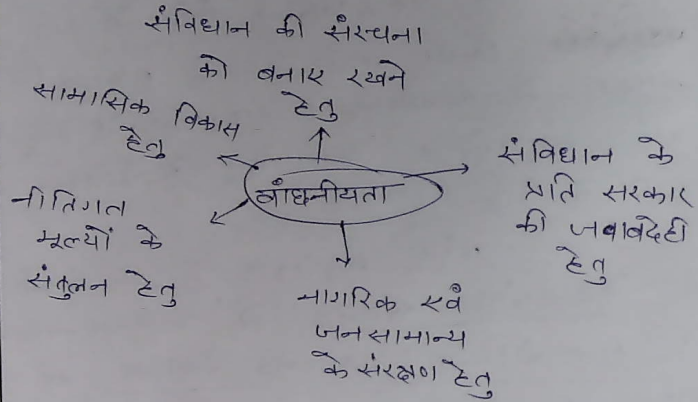 संविधान की संरचना
को बनाए रखने
हेतु
सामासिक विकास
हेतु
संविधान के
प्रति सरकार
की जवाबदेही
हेतु
बांधनीयता
नीतिगत
मूल्यों के
संतुलन हेतु
नागरिक एवं
जनसामान्य
के संरक्षण हेतु